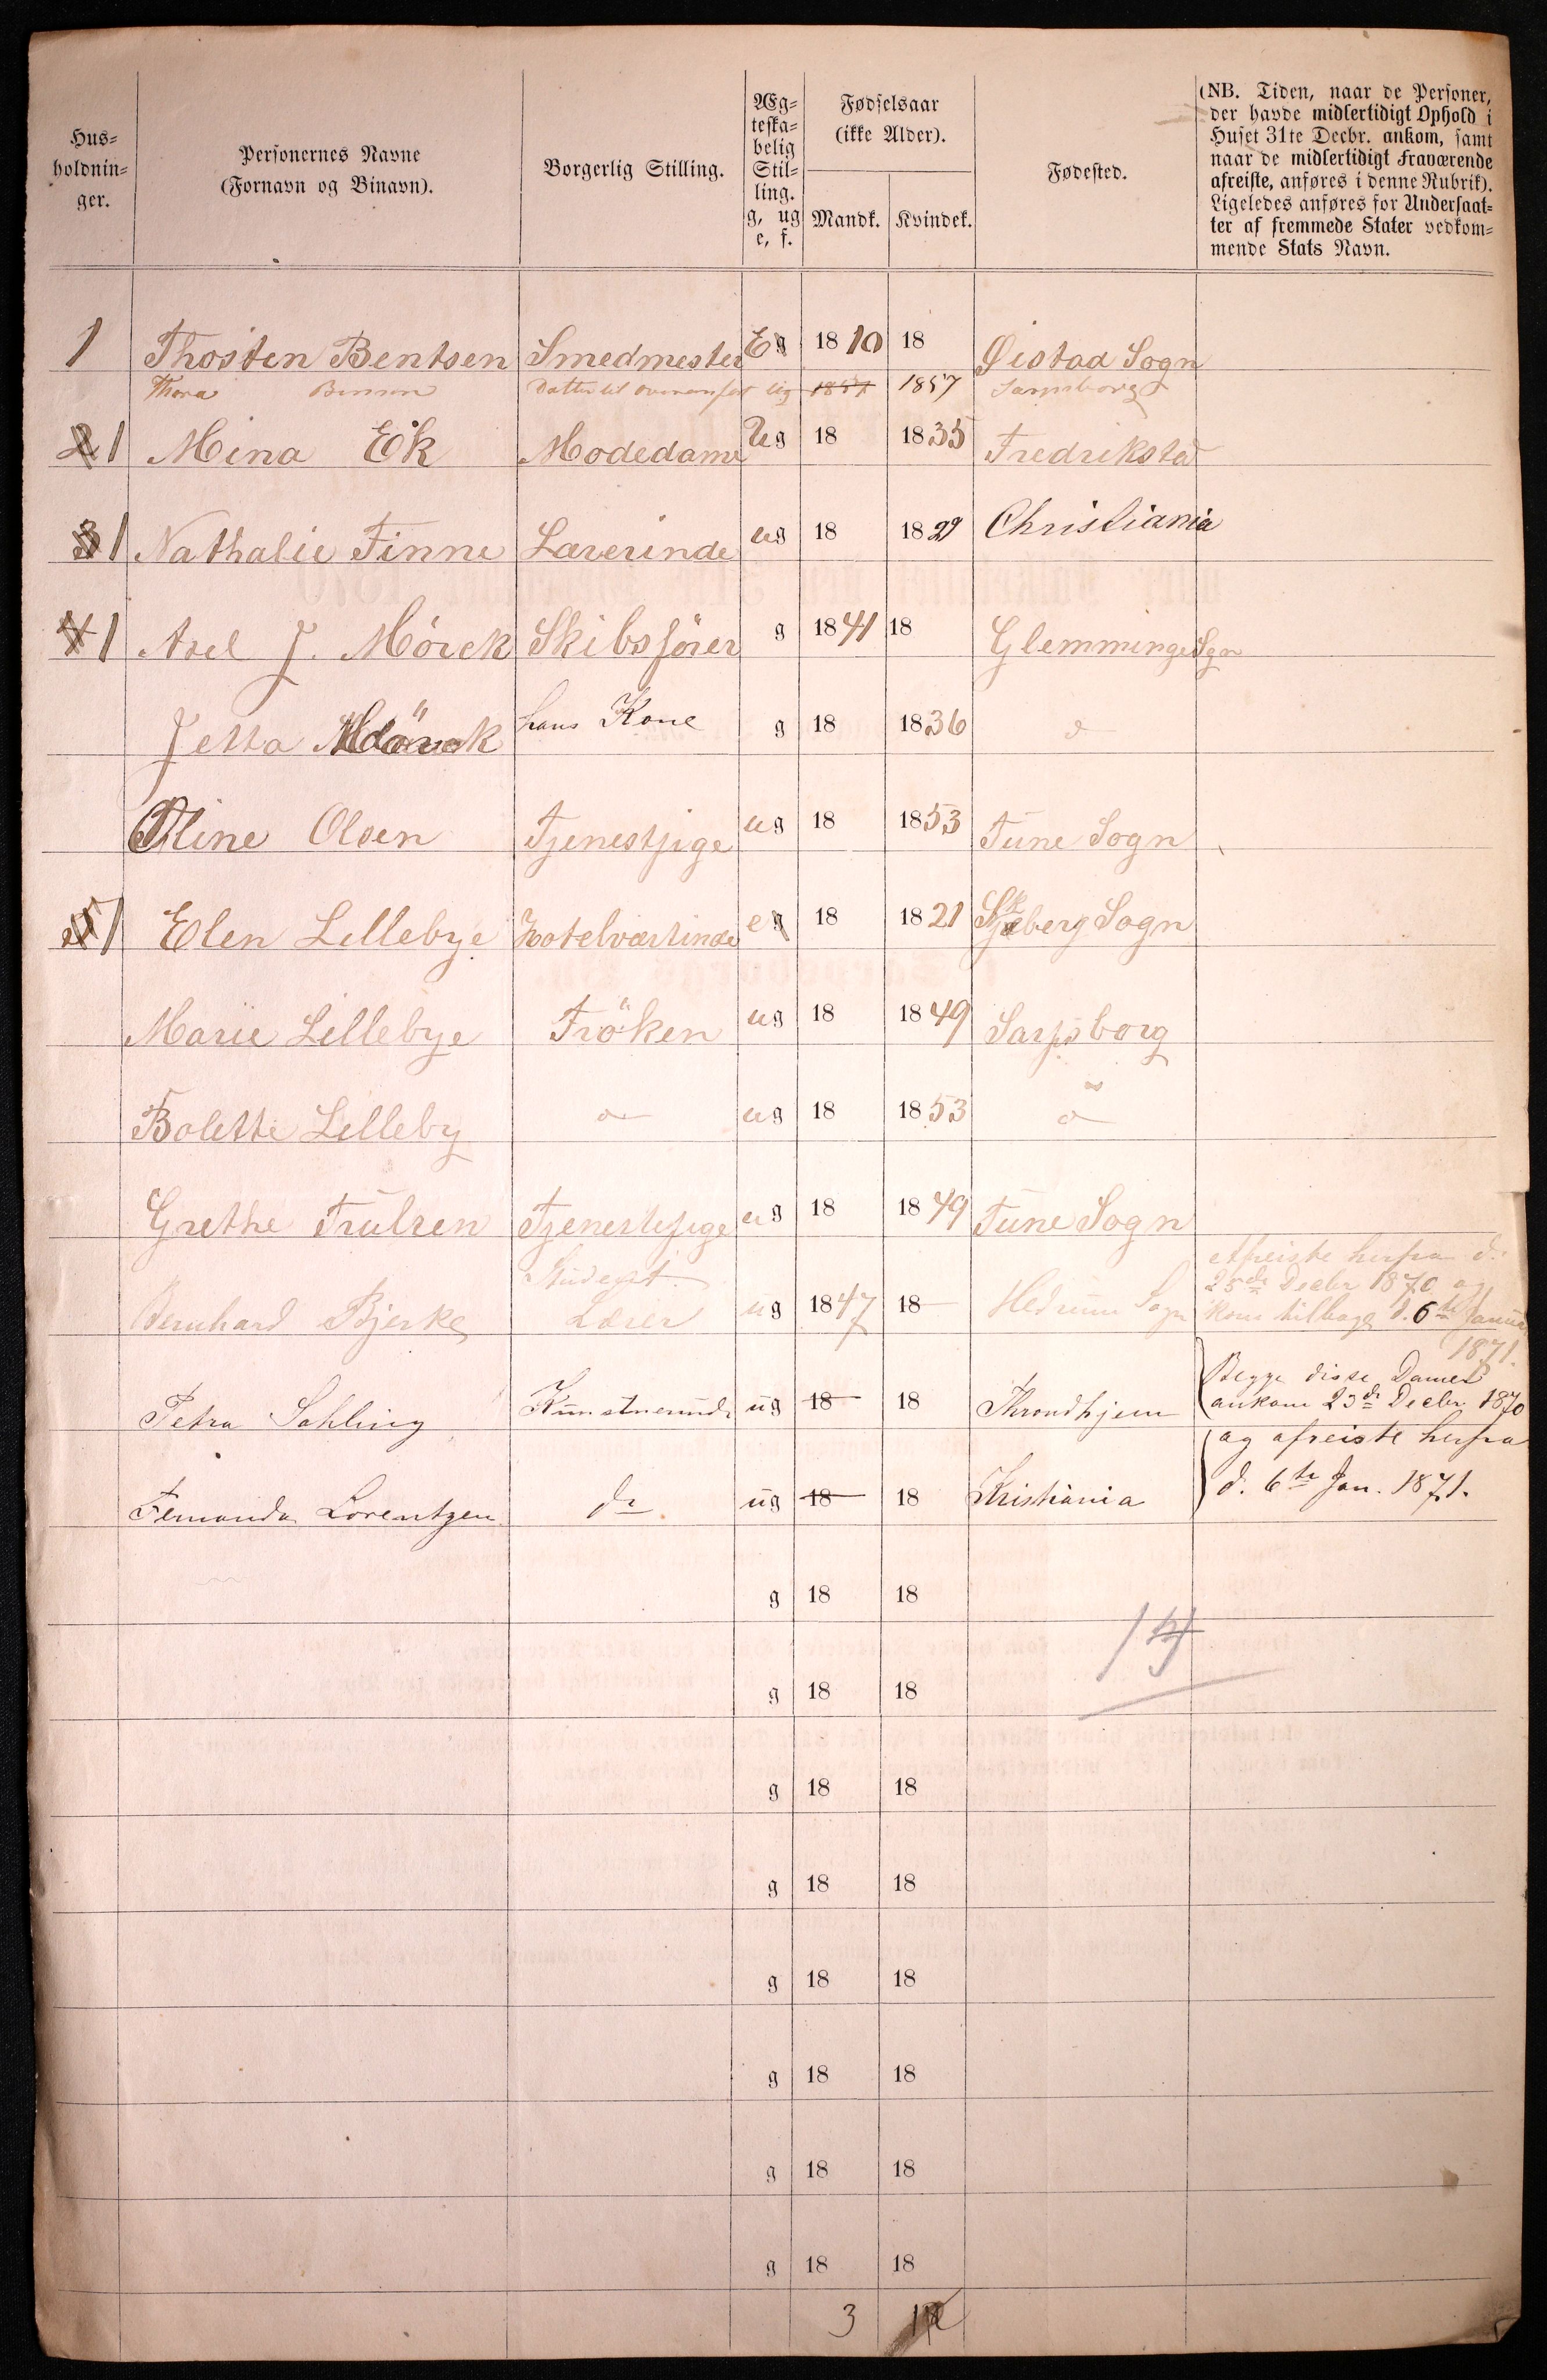 Hus-
holdnin-
ger.
Personernes Navne
(Fornavn og Binavn).
Borgerlig Stilling.
Æg-
teska-
belig
Stil-
ling.
g, ug
e, f.
Fødselsaar
(ikke Alder).
Mandk. Kvindek.
Fødested.
(NB. Tiden, naar de Personer,
der havde midlertidigt Ophold i
Huset 31te Decbr. ankom, samt
naar de midlertidigt Fraværende
afreiste, anføres i denne Rubrik).
Ligeledes anføres for Undersaat-
ter af fremmede Stater vedkom-
mende Stats Navn.
1 Thosten Bentsen Smedmester E g 1810 18 Øistad Sogn
Thora Datter til ug 1857 1857 Sarpsborg
2 1 Mina Ek Modedame Ug 18 1835 Fredrikstad
3 1 Nathalie Finne Lærerinde ug 18 1829 Christiania
4 1 Axel J. Mörck Skibsförer g 1841 18 Glemminge Sgn
Jetta Mörck hans Kone g 18 1836 d
Oline Olsen Tjenestpige ug 18 1853 Tune Sogn
5 1 Elen Lillebye Hotelværtinde e g 18 1821 Skjeberg Sogn
Marie Lillebye Fröken ug 18 1849 Sarpsborg
Bolette Lilleby d ug 18 1853 d
Grethe Trulsen Tjenestepige ug 18 1849 Tune Sogn
Student.
Bernhard Bjerke Lærer ug 1847 18 Hedrum Sogn
Afreiste herfra d.
25de Decbr 1870 og
kom tilbage d. 6te Januar
1871.
Petra Sohling Kunstnerinde ug 18 18 Throndhjem
Begge disse Damer
ankom 23de Decbr 1870
og afreiste herfra
d. 6te Jan. 1871.
Fernanda Lorentzen do ug 18 18 Kristiania
g 18 18
14
g 18 18
g 18 18
g 18 18
g 18 18
g 18 18
g 18 18
g 18 18
3